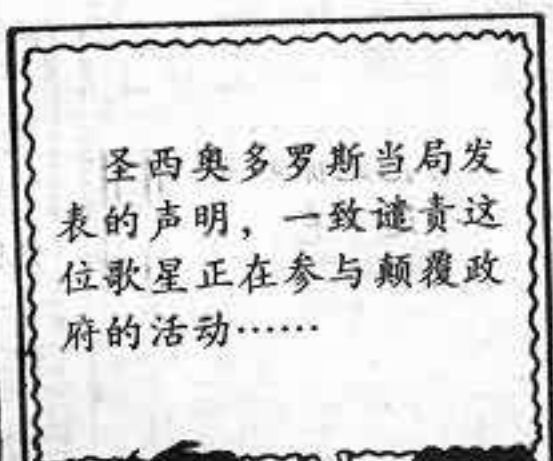 圣西奥多罗斯当局发
表的声明，一致谴责这
位歌星正在参与颠覆政
府的活动……